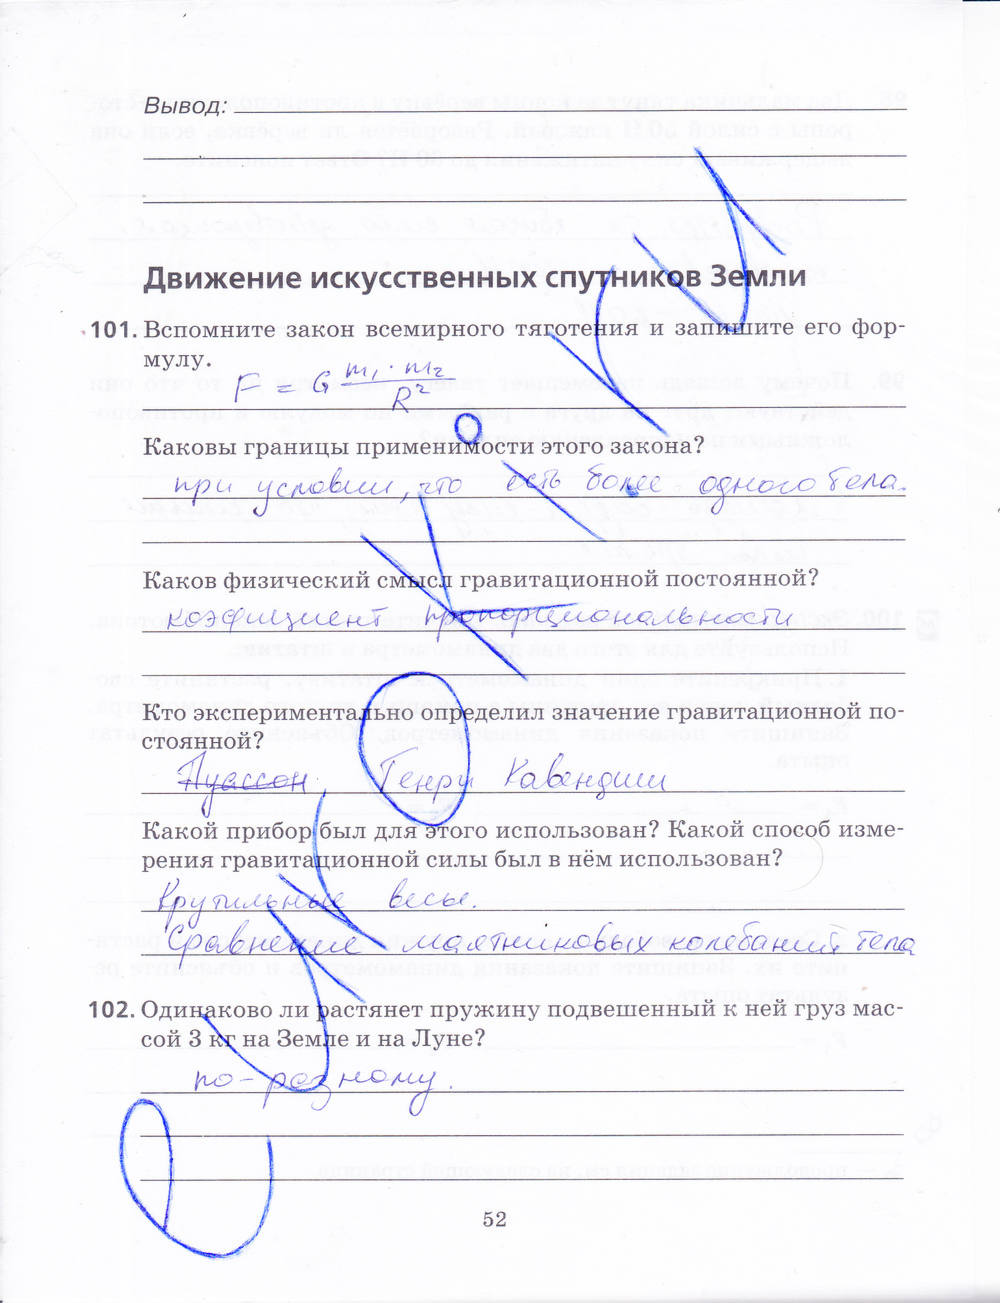 Вывод:
Движение искусственных спутников Земли
101. Вспомните закон всемирного тяготения и запишите его фор-
мулу.
F = G m₁ · m₂ / R²
Каковы границы применимости этого закона?
при условии, что есть более одного тела.
Каков физический смысл гравитационной постоянной?
коэфициент пропорциональности
Кто экспериментально определил значение гравитационной по-
стоянной?
Пуассон, Генри Кавендиш
Какой прибор был для этого использован? Какой способ изме-
рения гравитационной силы был в нём использован?
Крутильные весы.
Сравнение маятниковых колебаний тела
102. Одинаково ли растянет пружину подвешенный к ней груз мас-
сой 3 кг на Земле и на Луне?
по-разному.
52